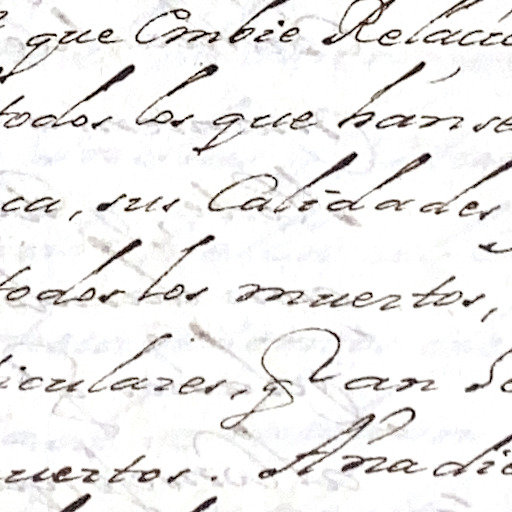 que Embie Relacio
todos los que han se
ca, sus Calidades
todos los muertos,
iculares, q an
uertos. Añadie